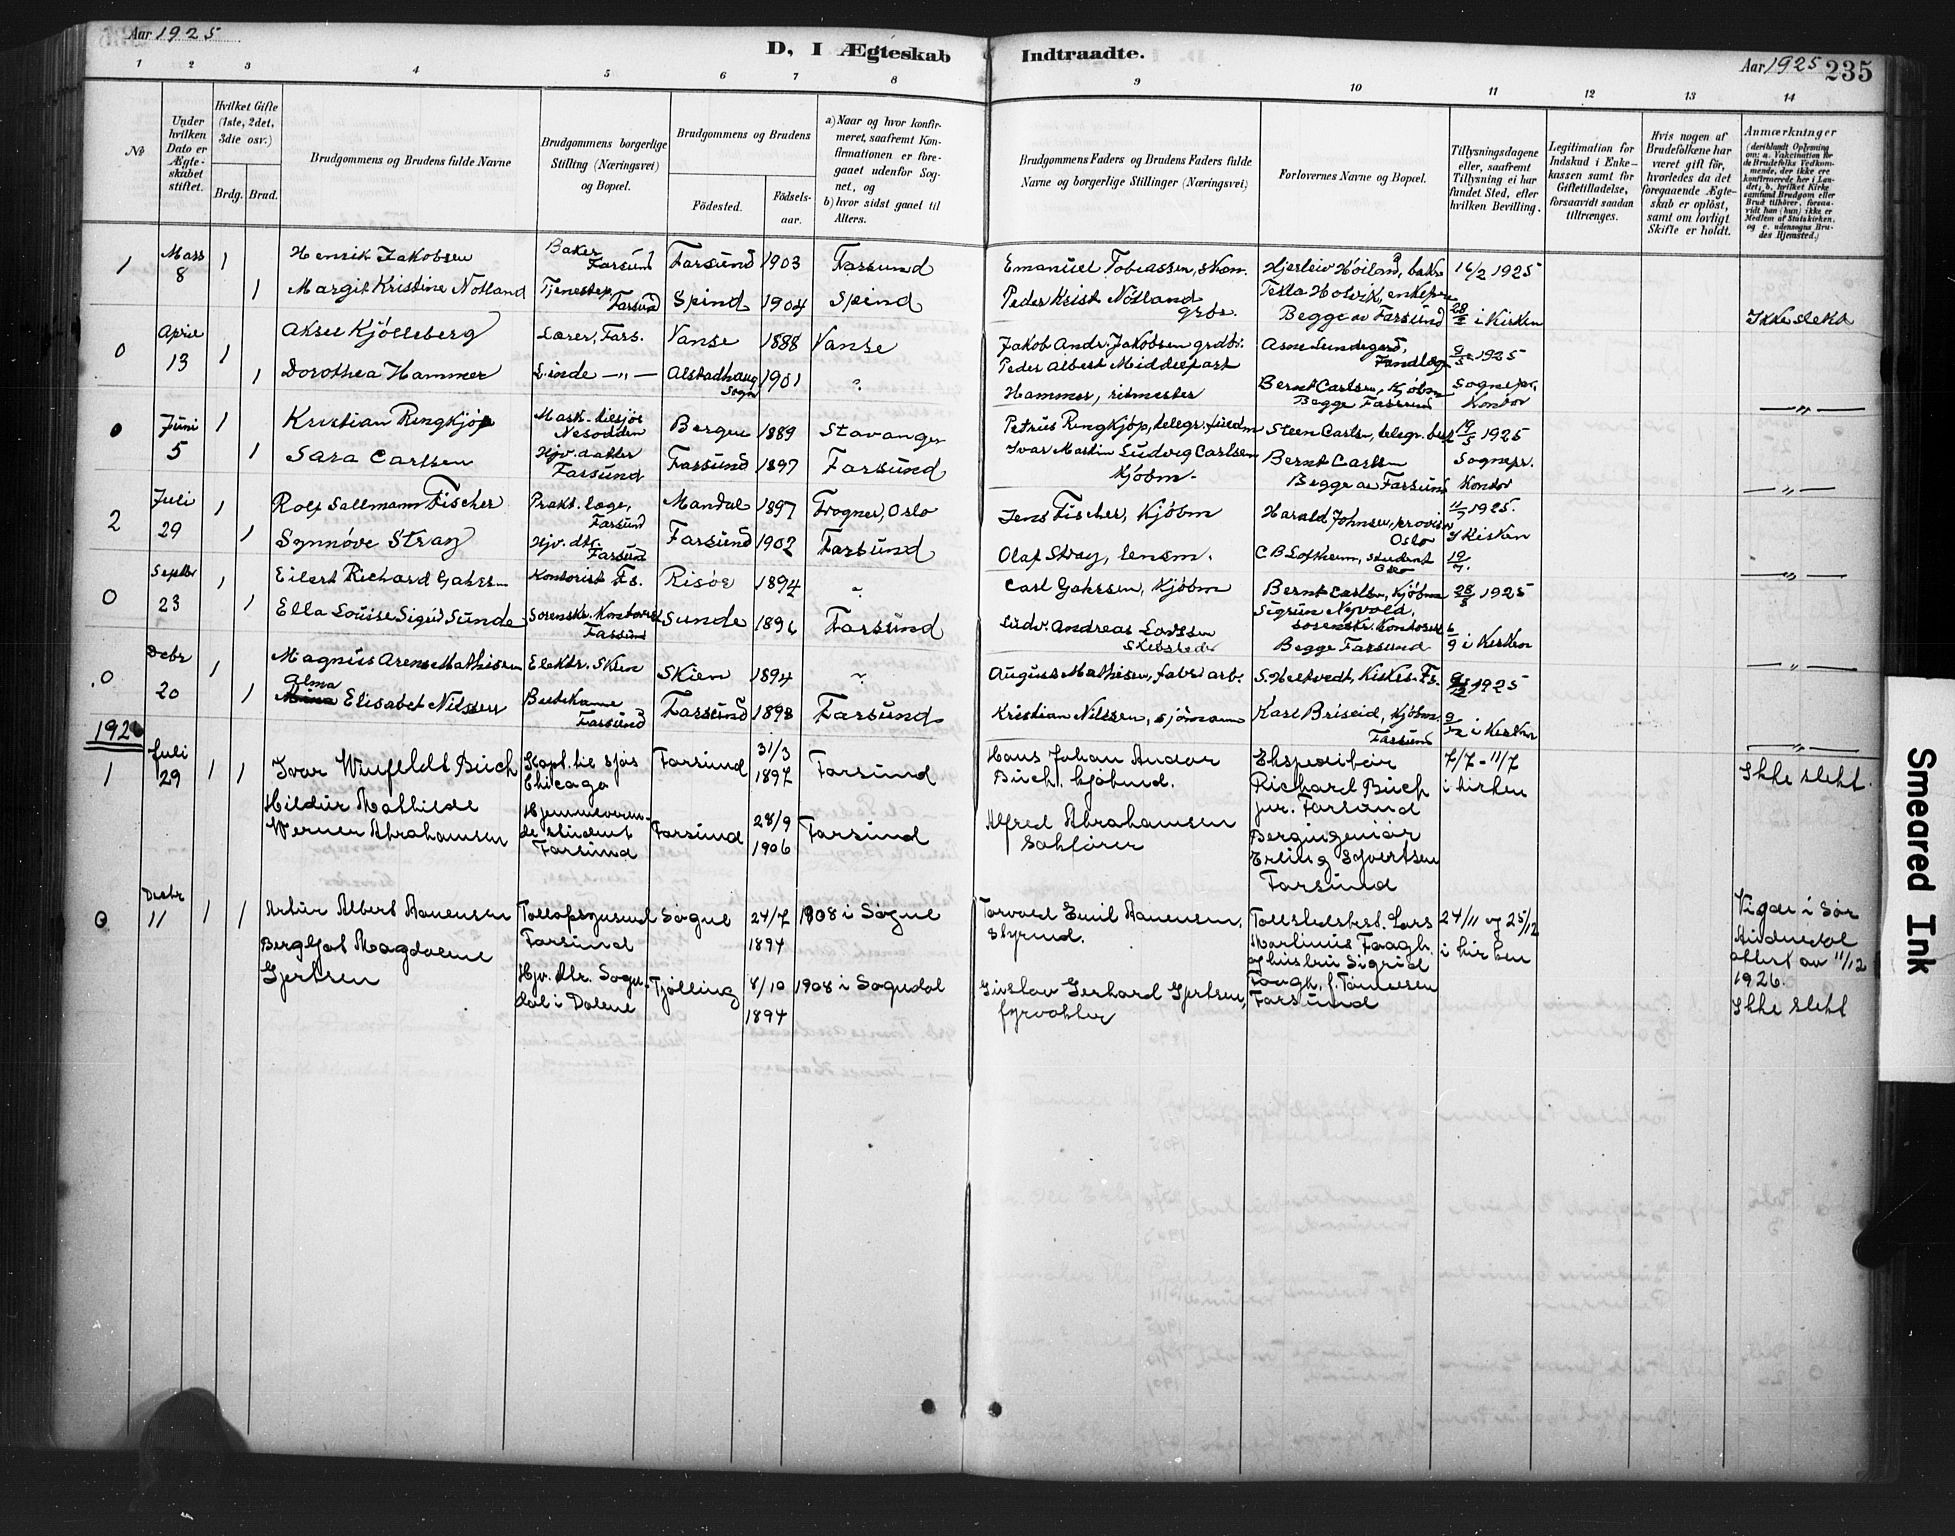 Aar 1925
D, I Ægteskab Indtraadte.
Aar 1925 235
1 2 3 4 5 6 7 8 9 10 11 12 13 14
No
Under hvilken Dato er Ægteskabet stiftet.
Hvilket Gifte (1ste, 2det, 3die osv.)
Brdg. Brud.
Brudgommens og Brudens fulde Navne
Brudgommens borgerlige Stilling (Næringsvei) og Bopæl.
Brudgommens og Brudens
Fødested.
Fødsels-aar.
a) Naar og hvor konfirmeret, saafremt Konfirmationen er foregaaet udenfor Sognet, og
b) hvor sidst gaaet til Alters.
Brudgommens Faders og Brudens Faders fulde Navne og borgerlige Stillinger (Næringsvei)
Forlovernes Navne og Bopæl.
Tillysningsdagene eller, saafremt Tillysning ei har fundet Sted, efter hvilken Bevilling.
Legitimation for Indskud i Enkekassen samt for Giftetilladelse, forsaavidt saadan tiltrænges.
Hvis nogen af Brudefolkene har været gift før, hvorledes da det foregaaende Ægteskab er opløst, samt om lovligt Skifte er holdt.
Anmærkninger
1 Mars 8 1 Henrik Jakobsen Baker Farsund Farsund 1903 Farsund Emanuel Tobiassen, skom. Hjerleiv Høiland, baker 16/2 1925
1 Margit Kristine Nøtland Tjenestep. Farsund Spind 1904 Spind Peder Krist Nøtland grbr. Begge av Farsund i Kirken Ikke slekt
0 April 13 1 Aksel Kjølleberg Lærer, Fars. Vanse 1888 Vanse Jakob Andr. Jakobsen grdbr. 1925
1 Dorothea Hammer — " — Alstadhaug Sogn 1901 Peder Albert Middelfart Hammer, ritmester Bernt Carlsen, Kjøbm Begge Farsund Sognepr. Kontor — " —
0 Juni 5 1 Kristian Ringkjøp Nesodden Bergen 1889 Stavanger Petrus Ringkjøp, telegr. Steen Carlsen, telegr. best 1925
1 Sara Carlsen Hjv. datter Farsund Farsund 1897 Farsund Ivar Martin Ludvig Carlsen Kjøbm. Bernt Carlsen Begge av Farsund Sognepr. Kontor — " —
2 Juli 29 1 Rolf Sallmann Fischer Prakt. læge, Farsund Mandal 1897 Frogner, Oslo Jens Fischer, Kjøbm Harald Johnsen, provisor Oslo 11/7 1925. I Kirken
1 Synnøve Stray Hjv. dtr. Farsund Farsund 1902 Farsund Olaf Stray, lensm. C B Loftheim, student Oslo 19/7. — " —
0 Septbr 23 1 Eilert Richard Gahrsen Kontorist Fs. Risør 1894 Carl Gahrsen, Kjøbm Bernt Carlsen, Kjøbm 1925
1 Ella Louise Sigrid Sunde Sorenskr. Kontorist Farsund Sunde 1896 Farsund Ludv. Andreas Larssen Sigrun Nyvold, sorenskr. kontorist Begge Farsund 6/9 i Kirken — " —
0 Debr 20 1 Magnus Arent Mathisen Elektr. Skien Skien 1894 August Mathisen, fabrikarb. S. Heltvedt, Kirkes. Fs. 1925
1 Alma Elisabet Nilssen Bestekame Farsund Farsund 1898 Farsund Kristian Nilssen, sjømann Karl Briseid, Kjøbm. Farsund i Kirken — " —
1926
1 Juli 29 1 1 Ivar Winfeldt Buch Kapt. til sjøs Chicago Farsund 31/3 1897 Farsund Hans Johan Andor Buch. kjøbmd. Ekspeditør Richard Buch jnr. Farsund 7/7 - 11/7 i kirken Ikke slekt.
Hildur Mathilde Werner Abrahamsen Hjemmeværende student Farsund Farsund 28/9 1906 Farsund Alfred Abrahamsen Sakfører Bergingeniør Erling Syvertsen Farsund
0 Desbr 11 1 1 Artur Albert Aanensen Tolloppsynsmd Farsund Søgne 24/7 1894 1908 i Søgne Torvald Emil Aanensen, Styrmd. Tollstedsbest. Lars Martinus Faagh. og hustru Sigrid Faagh. f. Tønnesen Farsund 24/11 og 25/12 i kirken Vigde i Sør Audnedal attest av 11/12 1926. Ikke slekt
Bergljot Magdalene Gjertsen Hjv. dtr. Sogndal i Dalene Tjølling 8/10 1894 1908 i Sogndal Gustav Gerhard Gjertsen, fyrvokter
Smeared Ink